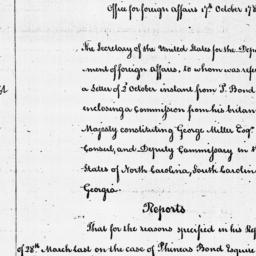 Office for foreign affairs 17th October 178
The Secretary of the United States for the Depa
ment of foreign affairs, to whom was refe
a Letter of 2 October instant from P. Bond
enclosing a Commission from his britan
Majesty constituting George Miller Esqr.
Consul, and Deputy Commissary in t
States of North Carolina, South Carolin
Georgia.
Reports
That for the reasons specified in his Rep
of 28th March last on the case of Phineas Bond Esquire